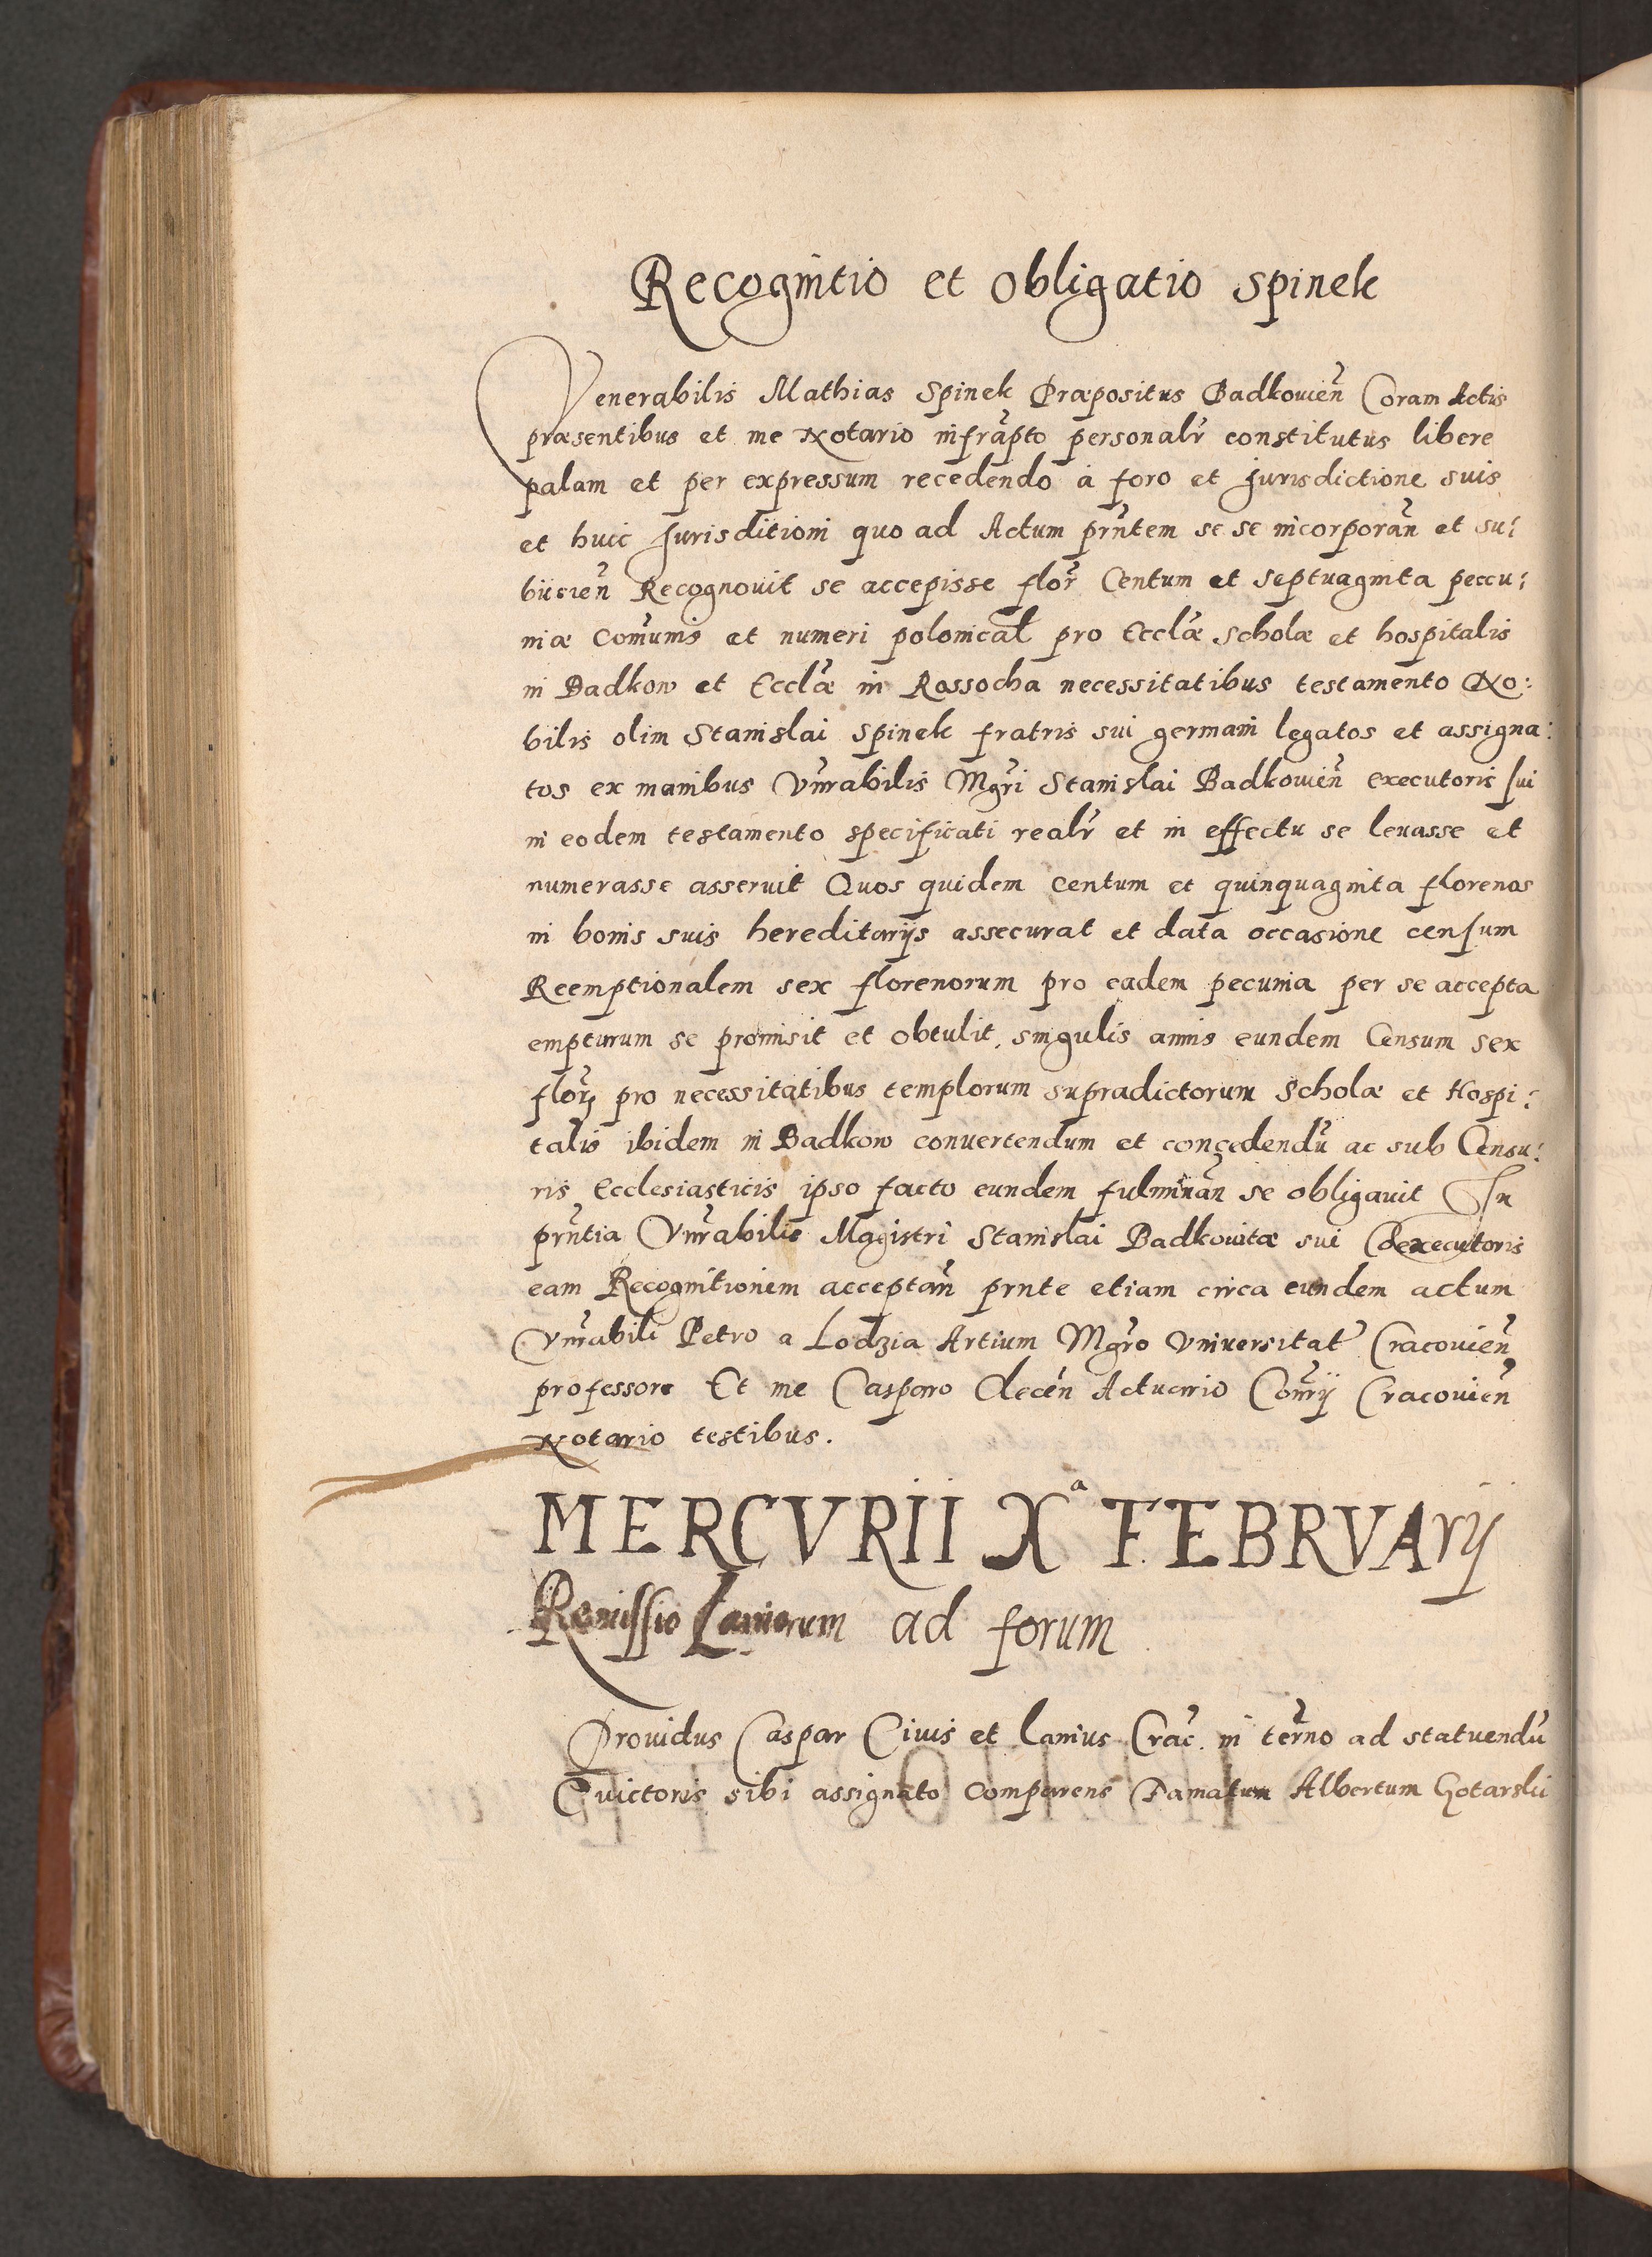 Recognitio et obligatio Spinek
Venerabilis Mathias Spinek Præpositus Badkovien̄ Coram Actis
præsentibus et me Notario infrāpto personalr̄ constitutus libere
palam et per expressum recedendo à foro et Jurisdictione suis
et huic Jurisditioni quo ad Actum prn̄tem se se incorporan̄ et su:
biicien̄ Recognovit se accepisse flor̄ Centum et septuaginta peccu:
niæ Com̄unis et numeri polonical̄ pro Eccl̄æ Scholæ et hospitalis
in Badkow et Eccl̄æ in Rossocha necessitatibus testamento No:
bilis olim Stanislai Spinek fratris sui germani legatos et assigna:
tos ex manibus Vn̄rabilis Mgr̄i Stanislai Badkovien̄ executoris sui
in eodem testamento specificati realr̄ et in effectu se levasse et
numerasse asseruit Quos quidem centum et quinquaginta florenos
in bonis suis hereditarijs assecurat et data occasione censum
Reemptionalem sex florenorum pro eadem pecunia per se accepta
empturum se promisit et obtulit, singulis annis eundem Censum sex
flor̄ pro necessitatibus templorum supradictorum Scholæ et Hospi:
talis ibidem in Badkow convertendum et concedendū ac sub Censu:
ris Ecclesiasticis ipso facto eundem fulminan̄ se obligavit In
prn̄tia Vn̄rabilis Magistri Stanislai Badkovitæ sui Coexecutoris
eam Recognitionem acceptan̄ prnte etiam circa eundem actum
Vn̄rabili Petro a Lodzia Artium Mgr̄o Universitat̄ Cracovien̄
professore Et me Casparo Clecen̄ Actuario Con̄rij Cracovien̄
Notario testibus.
MERCVRII Xª FEBRVArij
Remissio Laniorum ad forum
Providus Caspar Civis et Lanius Crac̄. in ter̄no ad statuendū
Evictoris sibi assignato comparens Famatum Albertum Gotarski